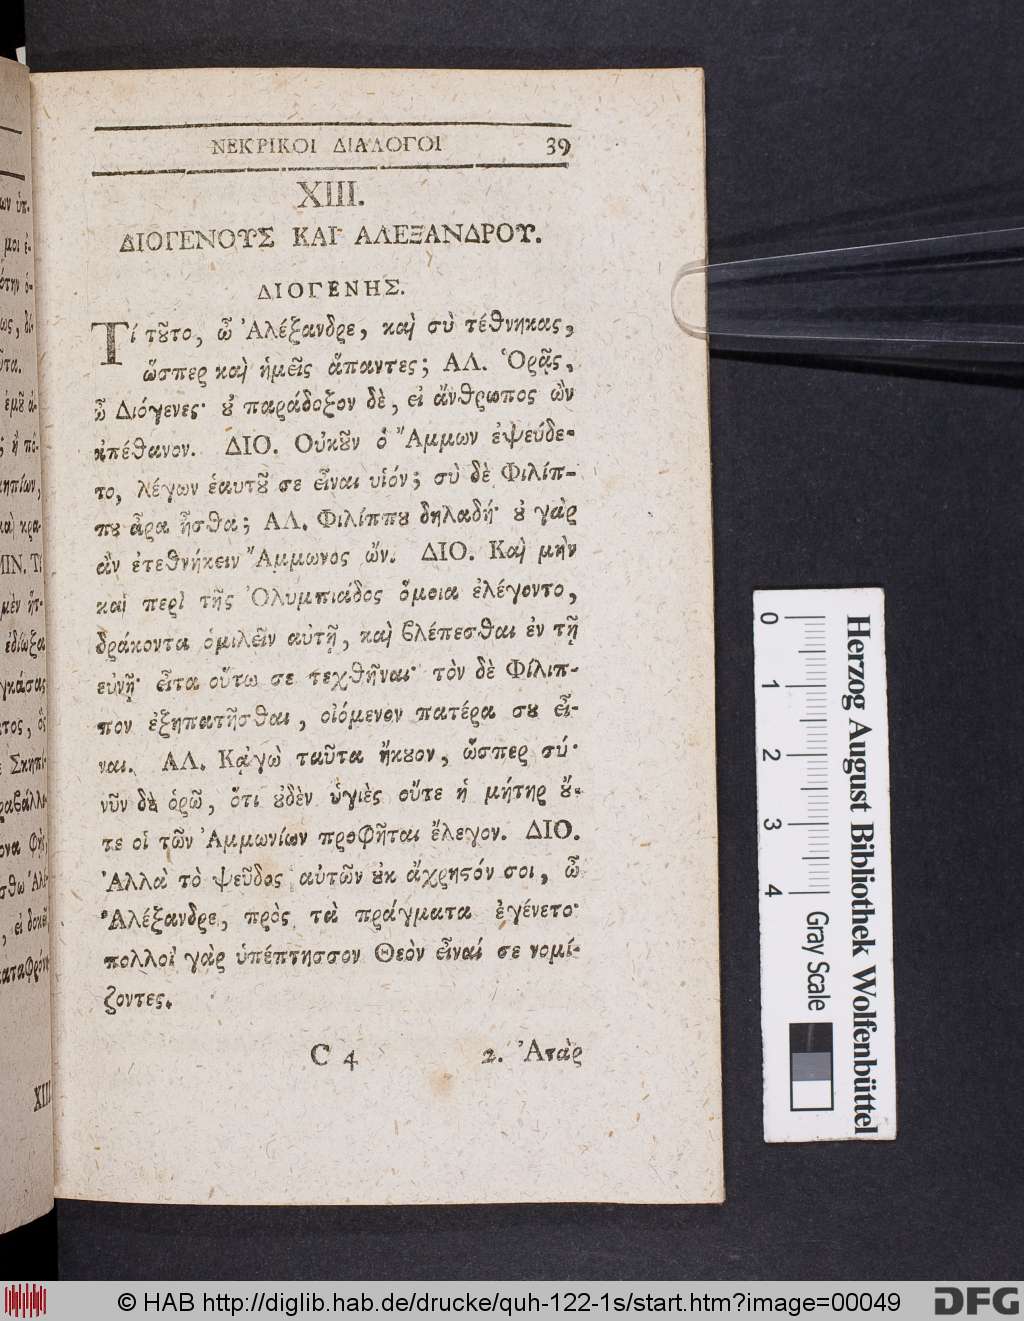 ΝΕΚΡΙΚΟΙ ΔΙΑΛΟΓΟΙ 39
XIII.
ΔΙΟΓΕΝΟΥΣ ΚΑΙ ΑΛΕΞΑΝΔΡΟΥ.
ΔΙΟΓΕΝΗΣ.
Τί τȣ͂το, ὦ Ἀλέξανδρε, καὶ σὺ τέθνηκας,
ὥσπερ καὶ ἡμεῖς ἅπαντες; ΑΛ. Ὁρᾷς,
ὦ Διόγενες· ȣ̓ παράδοξον δὲ, εἰ ἄνθρωπος ὢν
ἀπέθανον. ΔΙΟ. Οὐκȣ͂ν ὁ Ἄμμων ἐψεύδε-
το, λέγων ἑαυτȣ͂ σε εἶναι υἱόν; σὺ δὲ Φιλίπ-
πȣ ἆρα ἦσθα; ΑΛ. Φιλίππȣ δηλαδή· ȣ̓ γὰρ
ἂν ἐτεθνήκειν Ἄμμωνος ὤν. ΔΙΟ. Καὶ μὴν
καὶ περὶ τῆς Ὀλυμπιάδος ὅμοια ἐλέγοντο,
δράκοντα ὁμιλεῖν αὐτῇ, καὶ βλέπεσθαι ἐν τῇ
εὐνῇ· εἶτα οὕτω σε τεχθῆναι· τὸν δὲ Φίλιπ-
πον ἐξηπατῆσθαι, οἰόμενον πατέρα σȣ εἶ-
ναι. ΑΛ. Κᾀγὼ ταῦτα ἤκȣον, ὥσπερ σύ·
νῦν δὲ ὁρῶ, ὅτι ȣ̓δὲν ὑγιὲς οὔτε ἡ μήτηρ ȣ̓́-
τε οἱ τῶν Ἀμμωνίων προφῆται ἔλεγον. ΔΙΟ.
Ἀλλὰ τὸ ψεῦδος αὐτῶν ȣ̓κ ἄχρηϛόν σοι, ὦ
Ἀλέξανδρε, πρὸς τὰ πράγματα ἐγένετο·
πολλοὶ γὰρ ὑπέπτησσον Θεὸν εἶναί σε νομί-
ζοντες.
C 4 2. Ἀτὰρ
XIII
0 1 2 3 4 Gray Scale
Herzog August Bibliothek Wolfenbüttel
© HAB http://diglib.hab.de/drucke/quh-122-1s/start.htm?image=00049
DFG